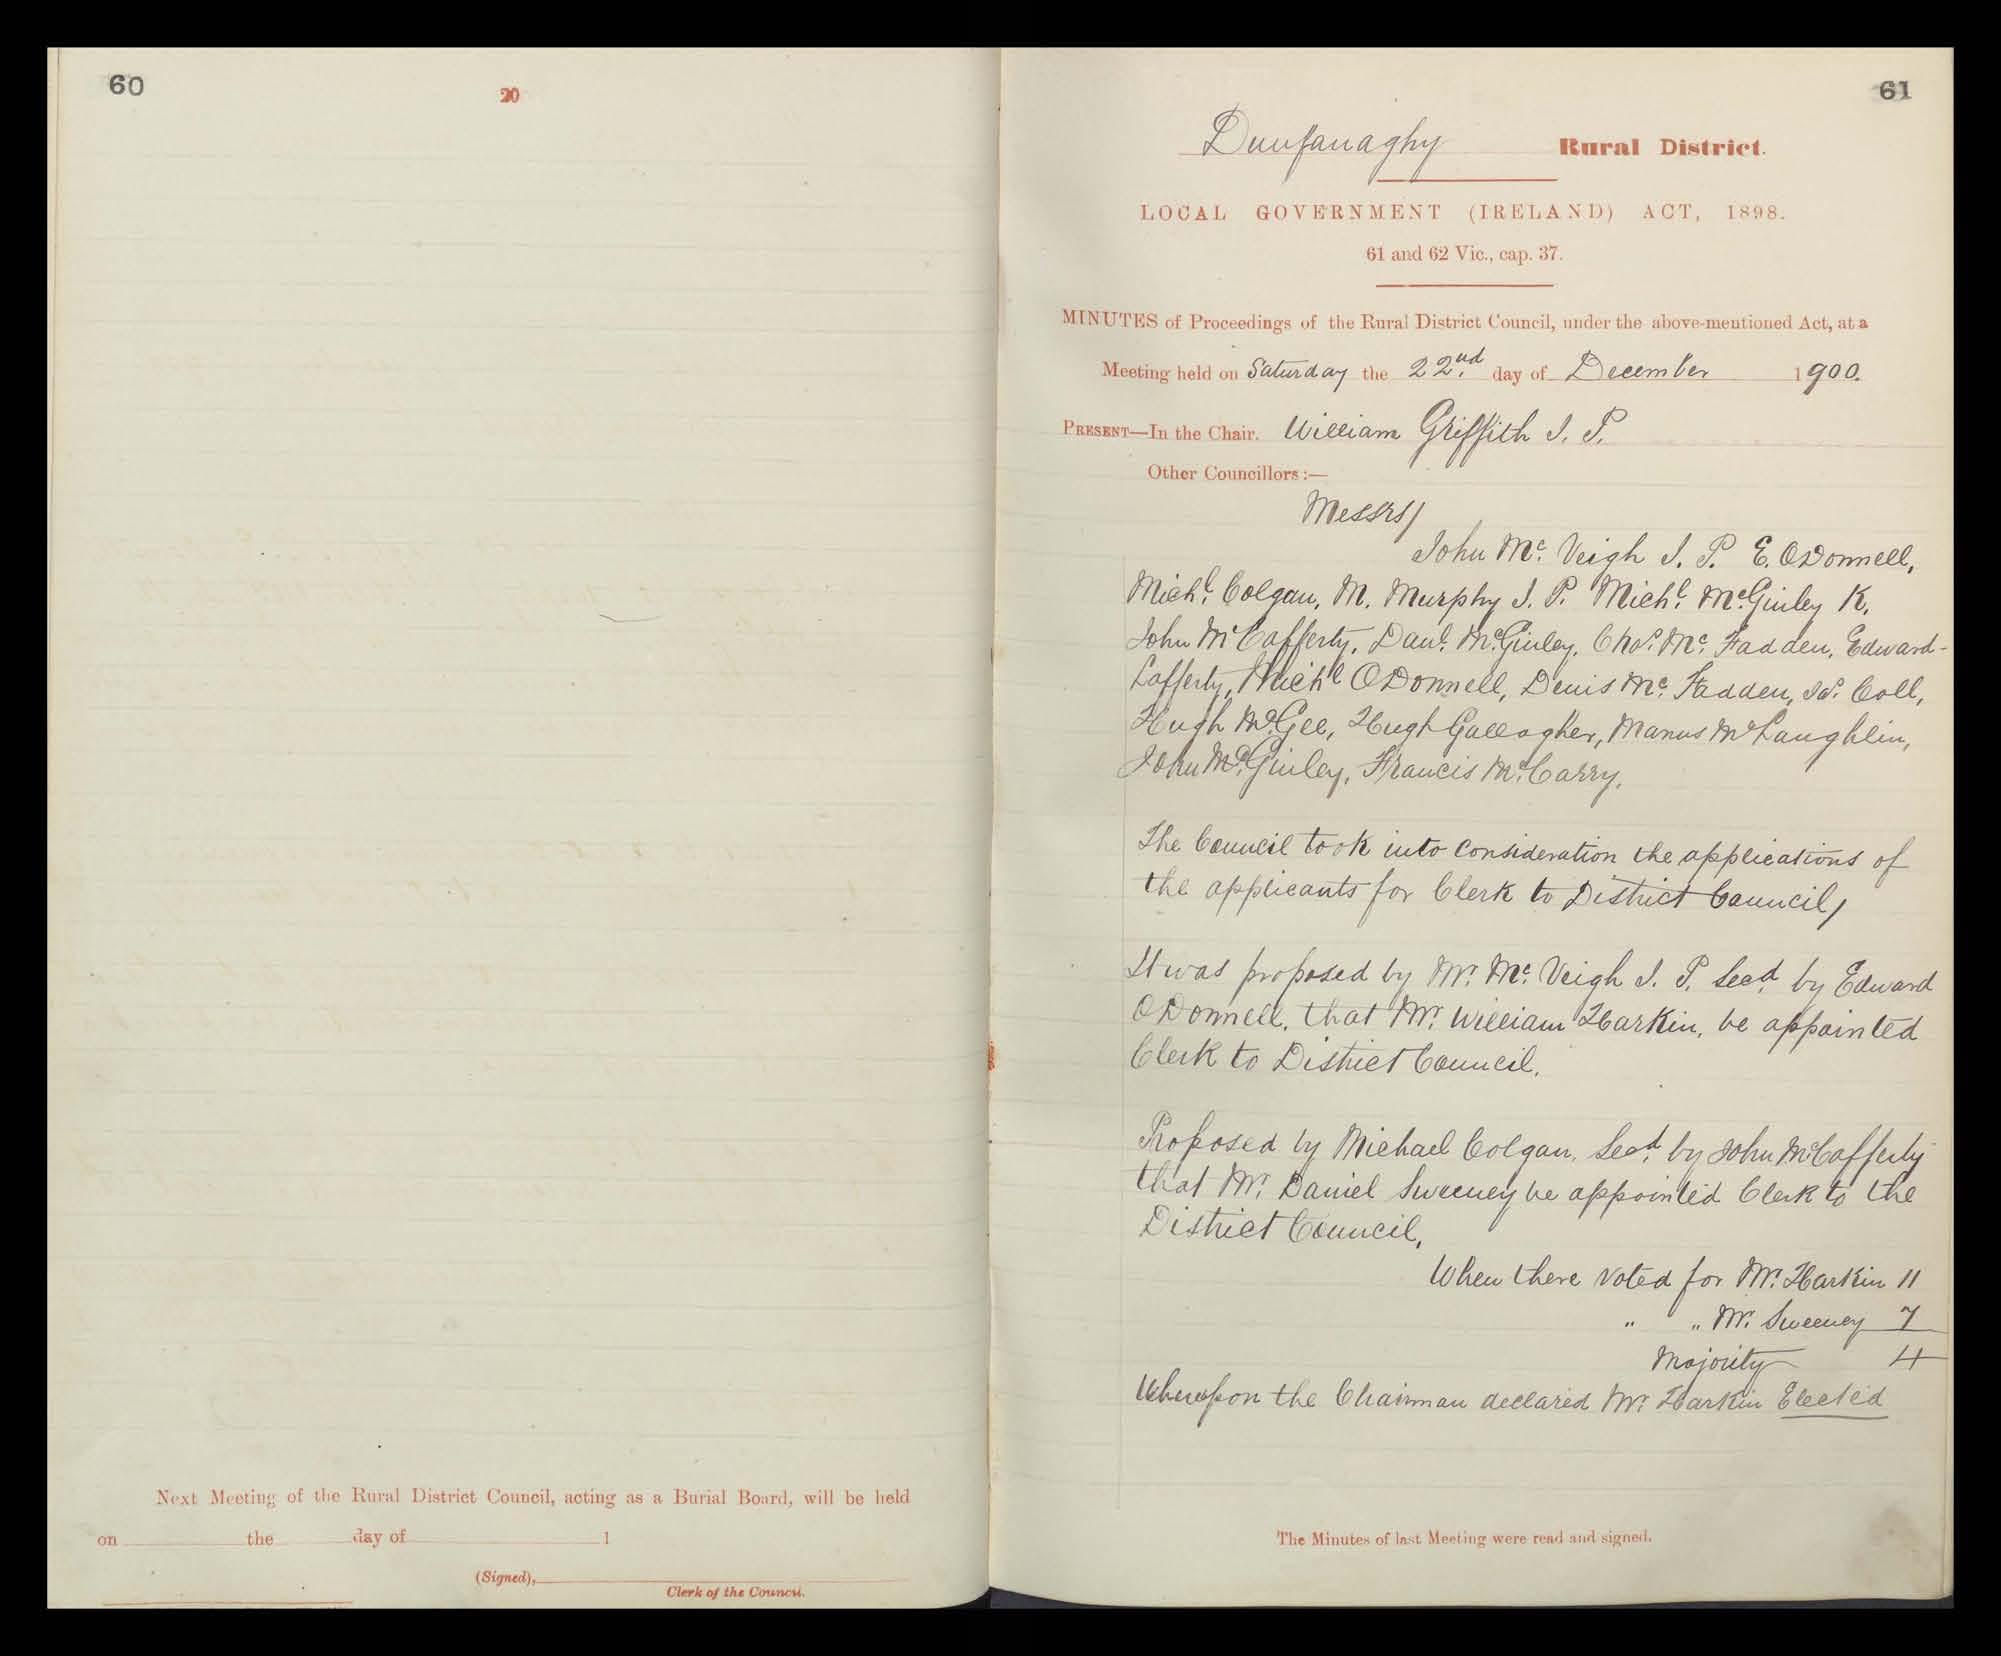 60
20
Next Meeting of the Rural District Council, acting as a Burial Board, will be held
on the day of 1
(Signed),
Clerk of the Council.
61
Dunfanaghy Rural District.
LOCAL GOVERNMENT (IRELAND) ACT, 1898.
61 and 62 Vic., cap. 37.
MINUTES of Proceedings of the Rural District Council, under the above-mentioned Act, at a
Meeting held on Saturday the 22nd. day of December 1900.
PRESENT—In the Chair. William Griffith J. P.
Other Councillors:—
Messrs/
John Mc. Veigh J. P. E. ODonnell,
Michl. Colgan, M. Murphy J. P. Michl. McGinley K.
John McCafferty, Danl. McGinley, Chas. Mc. Fadden, Edward-
Lafferty, Michl ODonnell, Denis Mc. Fadden, Js. Coll,
Hugh McGee, Hugh Gallagher, Manus McLaughlin,
John McGinley, Francis McCarry.
The Council took into consideration the applications of
the applicants for Clerk to District Council/
It was proposed by Mr. Mc. Veigh J. P. Secd. by Edward
ODonnell, that Mr. William Harkin, be appointed
Clerk to District Council.
Proposed by Michael Colgan, Secd. by John McCafferty
that Mr. Daniel Sweeney be appointed Clerk to the
District Council,
When there voted for Mr. Harkin 11
" " Mr. Sweeney 7
Majority 4
Whereupon the Chairman declared Mr. Harkin Elected
The Minutes of last Meeting were read and signed.